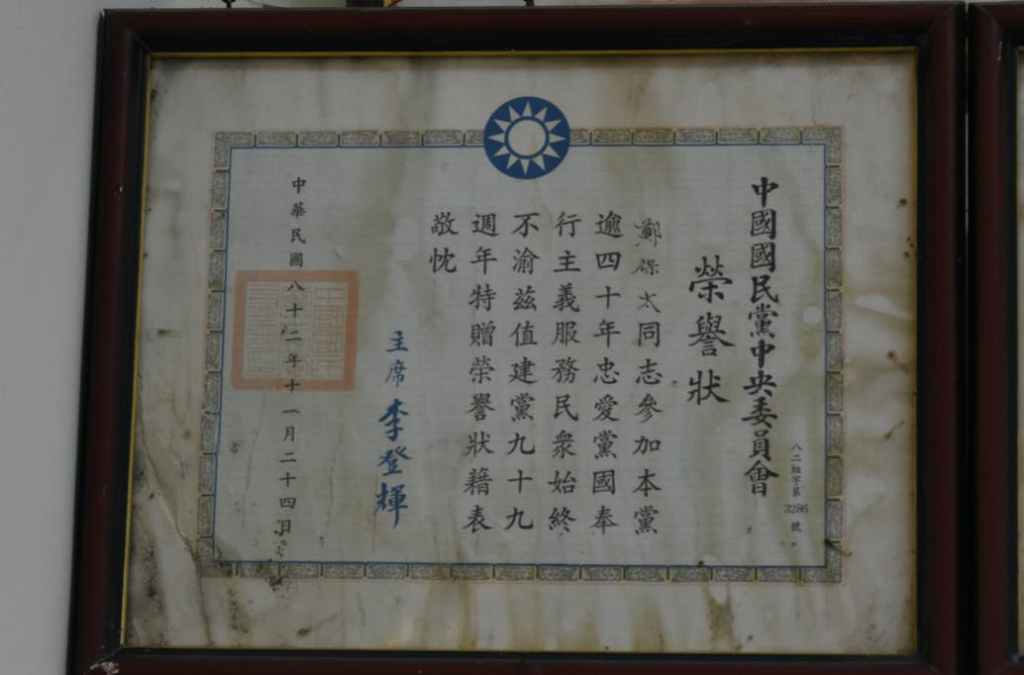 中國國民黨中央委員會
八二組字第3286號
榮譽狀
鄭保太同志參加本黨
逾四十年忠愛黨國奉
行主義服務民衆始終
不渝茲值建黨九十九
週年特贈榮譽狀藉表
敬忱
主席 李登輝
中華民國八十二年十一月二十四日